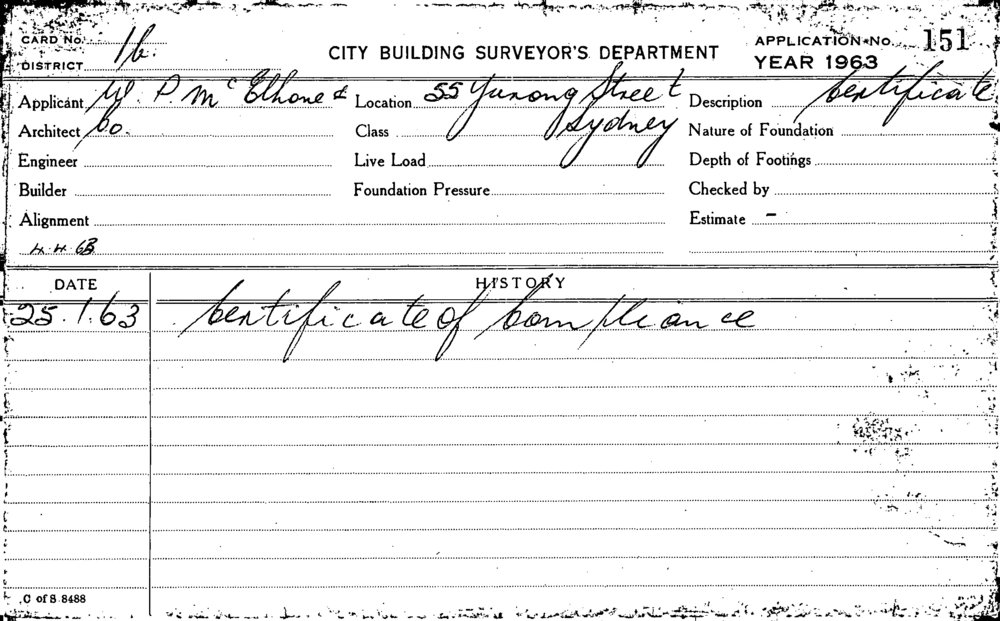 CARD No. 1b
DISTRICT
CITY BUILDING SURVEYOR'S DEPARTMENT
APPLICATION No. 151
YEAR 1963
Applicant W. P. McElhone &
Architect Co.
Engineer
Builder
Alignment
4.4.63
Location 55 Yurong Street
Class Sydney
Live Load
Foundation Pressure
Description Certificate
Nature of Foundation
Depth of Footings
Checked by
Estimate -
DATE HISTORY
25.1.63 Certificate of Compliance
C of S 8488